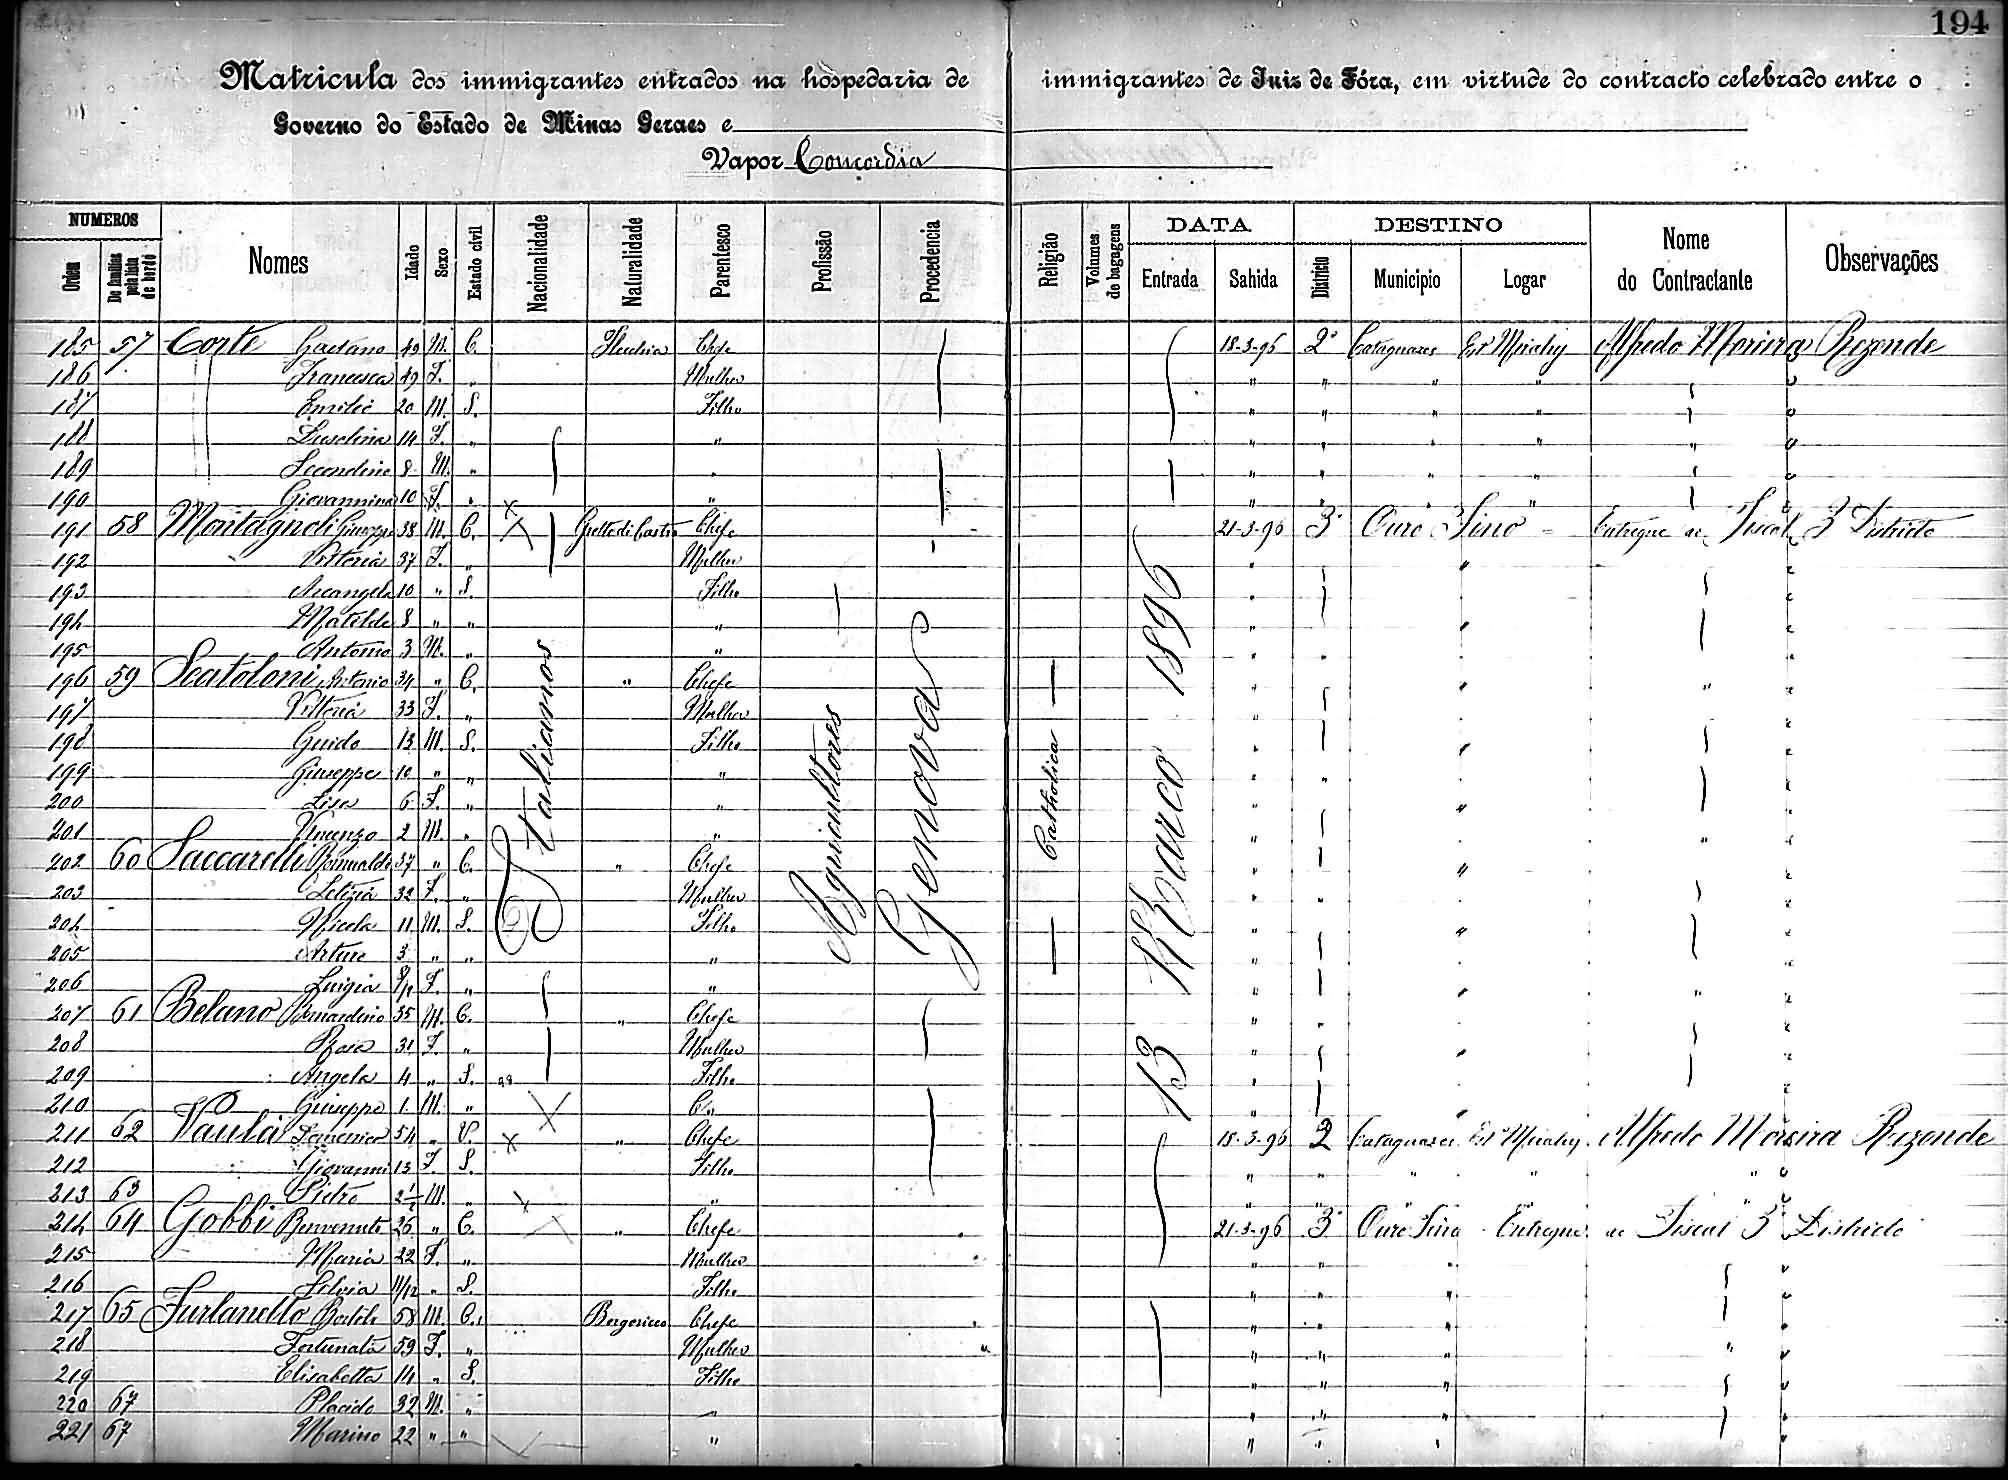 194
Matricula dos immigrantes entrados na hospedaria de immigrantes de Juiz de Fóra, em virtude do contracto celebrado entre o
Governo do Estado de Minas Geraes e
Vapor Concordia
NUMEROS DATA DESTINO
Ordem De familias pela lista de bordo Nomes Idade Sexo Estado civil Nacionalidade Naturalidade Parentesco Profissão Procedencia Religião Volumes de bagagens Entrada Sahida Districto Municipio Logar Nome do Contractante Observações
Italianos Agricultores Genova Catholica 13 Março 1896
185 57 Conte Gaetano 49 M. C. Chefe 18-3-96 2º Cataguazes Est Mirahy Alfredo Moreira Rezende
186 Francesca 49 F. " Mulher " " " "
187 Emilio 20 M. S. Filho " " " "
188 14 F. " " " " " " "
189 Secondino 8 M. " " " " " "
190 Giovannina 10 F. " " " " " "
191 58 Montagnoli Giuseppe 38 M. C. Grotte di Castro Chefe 21-3-96 3º Ouro Fino Entregue ao Fiscal 3 Districto
192 Vittoria 37 F. " Mulher " "
193 Arcangela 10 " S. Filho "
194 Matilde 8 " " " " "
195 Antonio 3 M. " " " "
196 59 Scatoloni Antonio 34 " C. " Chefe " " "
197 Vittoria 33 F. " Mulher "
198 Guido 13 M. S. Filho " "
199 Giuseppe 10 " " " " "
200 Lisa 6 F. " " " "
201 Vincenzo 2 M. " " " "
202 60 Saccarelli Romualdo 37 " C. " Chefe " "
203 Letizia 32 F. " Mulher " "
204 Nicola 11 M. S. Filho " "
205 Arturo 3 " " " "
206 Luigia F. " " " " "
207 61 Belano Bernardino 35 M. C. " Chefe " "
208 Rosa 31 F. " Mulher " "
209 Angela 4 " S. Filho "
210 Giuseppe 1 M. " " "
211 62 Vaula Domenico 54 " V. " Chefe 18-3-96 2 Cataguazes Est Mirahy Alfredo Moreira Rezende
212 Giovanni 13 F. S. Filho " " " " "
213 63 Pietro 2½ M. " " " " " " "
214 64 Gobbi Benvenuto 26 " C. " Chefe 21-3-96 3º Ouro Fino Entregue ao Fiscal 3º Districto
215 Maria 22 F. " Mulher " " "
216 Silvia 11/12 " S. Filho " " "
217 65 Furlanetto 58 M. C. Chefe " " "
218 Fortunata 59 F. " Mulher " " " "
219 Elisabetta 14 " S. Filho " " "
220 67 Placido 32 M. " " " " "
221 67 Marino 22 " " " " " "